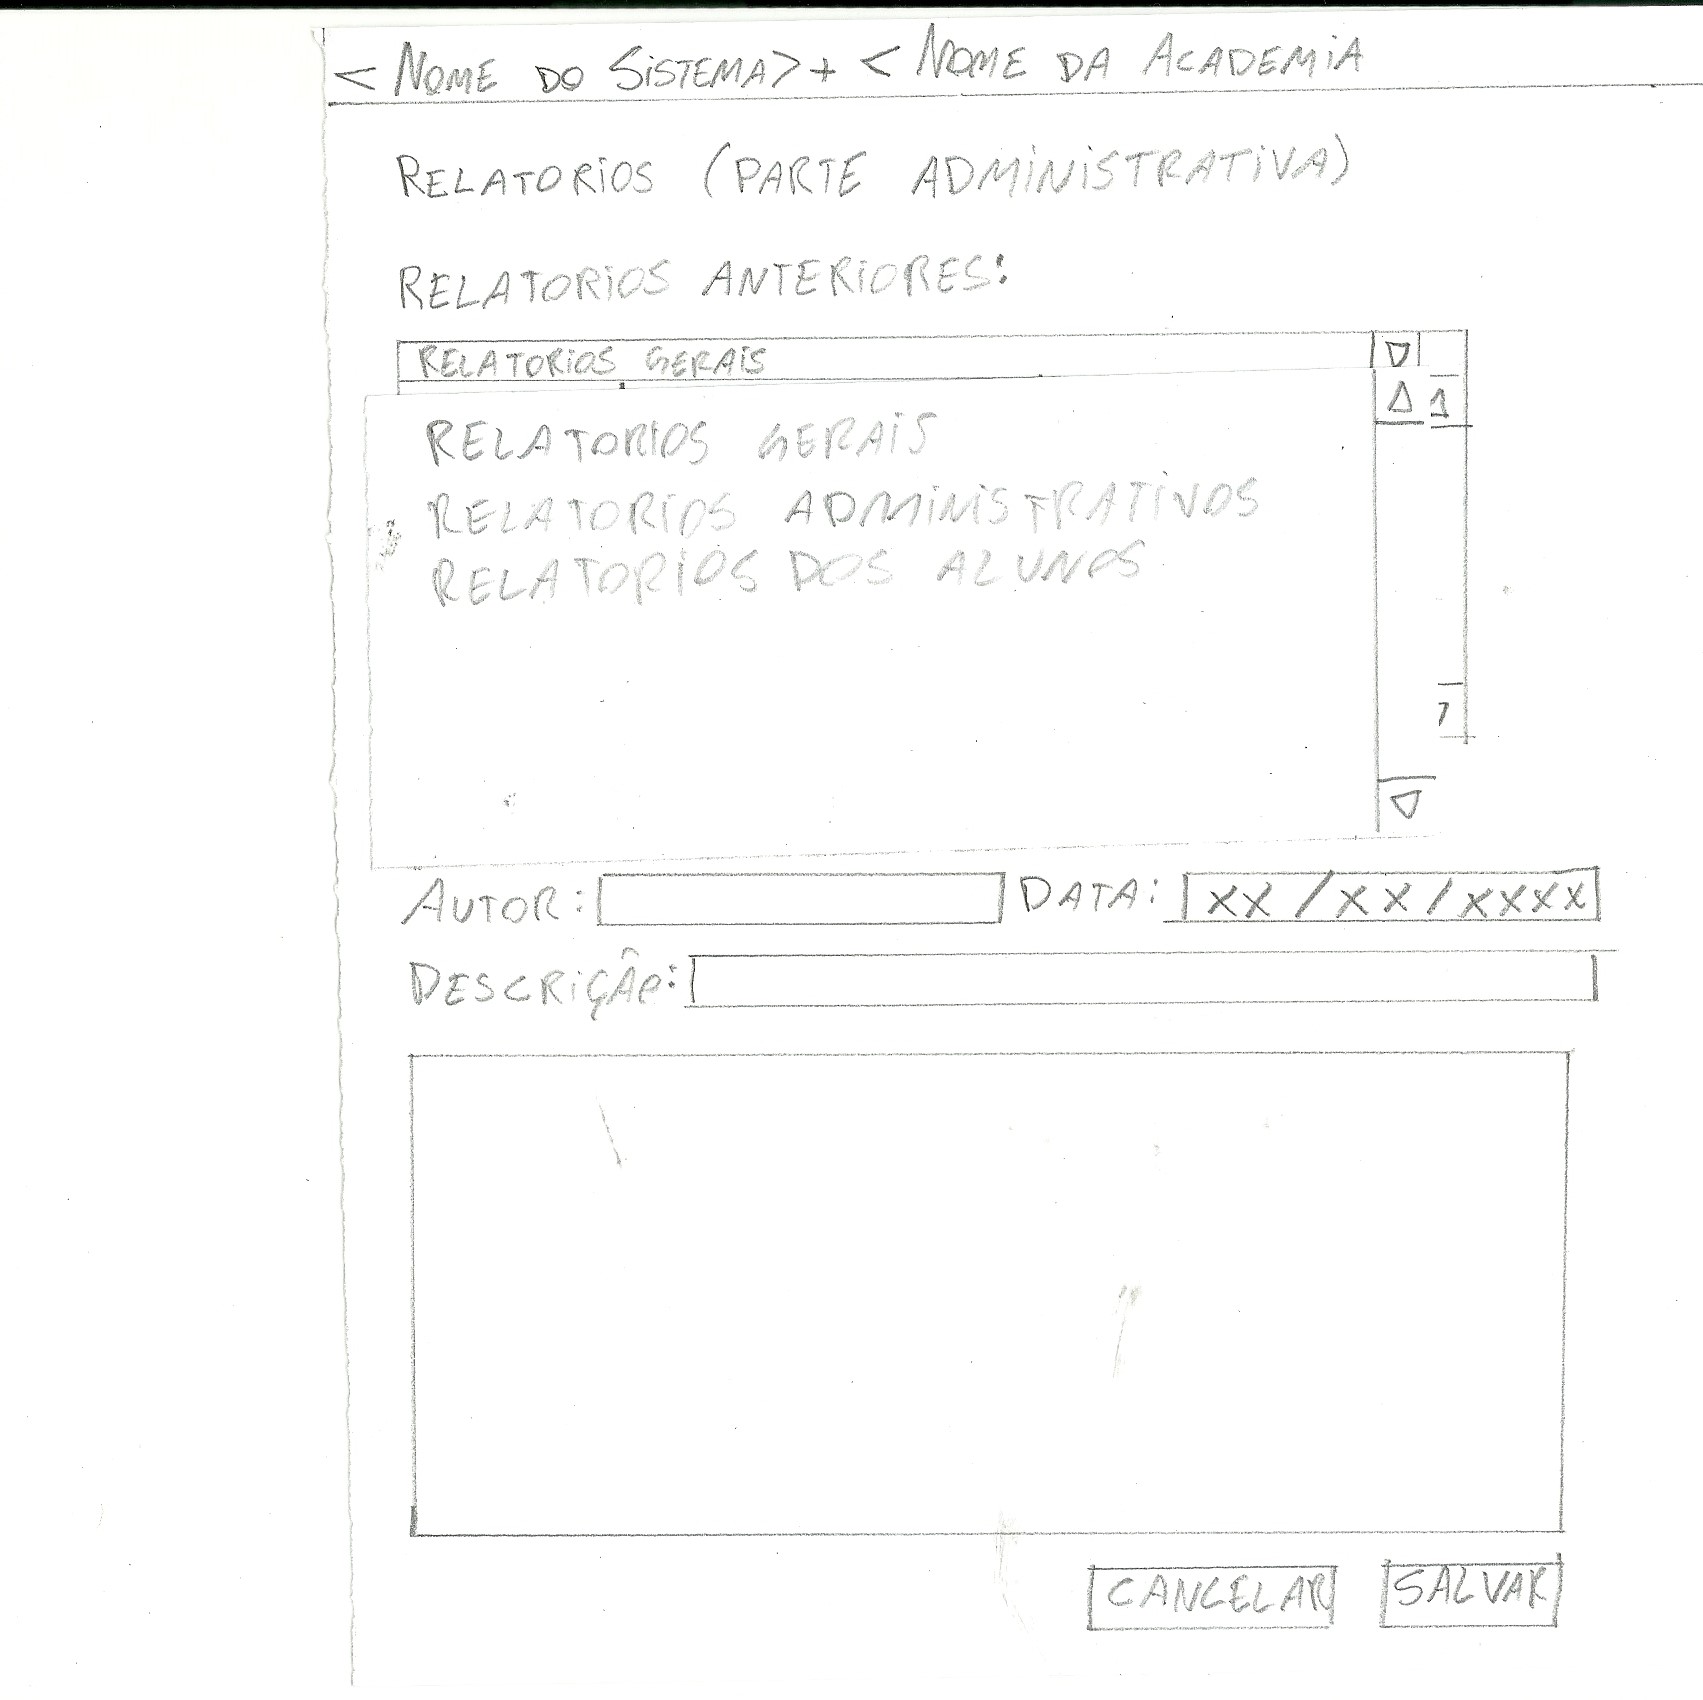 < NOME DO SISTEMA> + < NOME DA ACADEMIA
RELATORIOS (PARTE ADMINISTRATIVA)
RELATORIOS ANTERIORES:
RELATORIOS GERAIS
1
RELATORIOS GERAIS
RELATORIOS ADMINISTRATIVOS
RELATORIOS DOS ALUNOS
AUTOR: DATA: XX/XX/XXXX
DESCRIÇÃO:
CANCELAR SALVAR